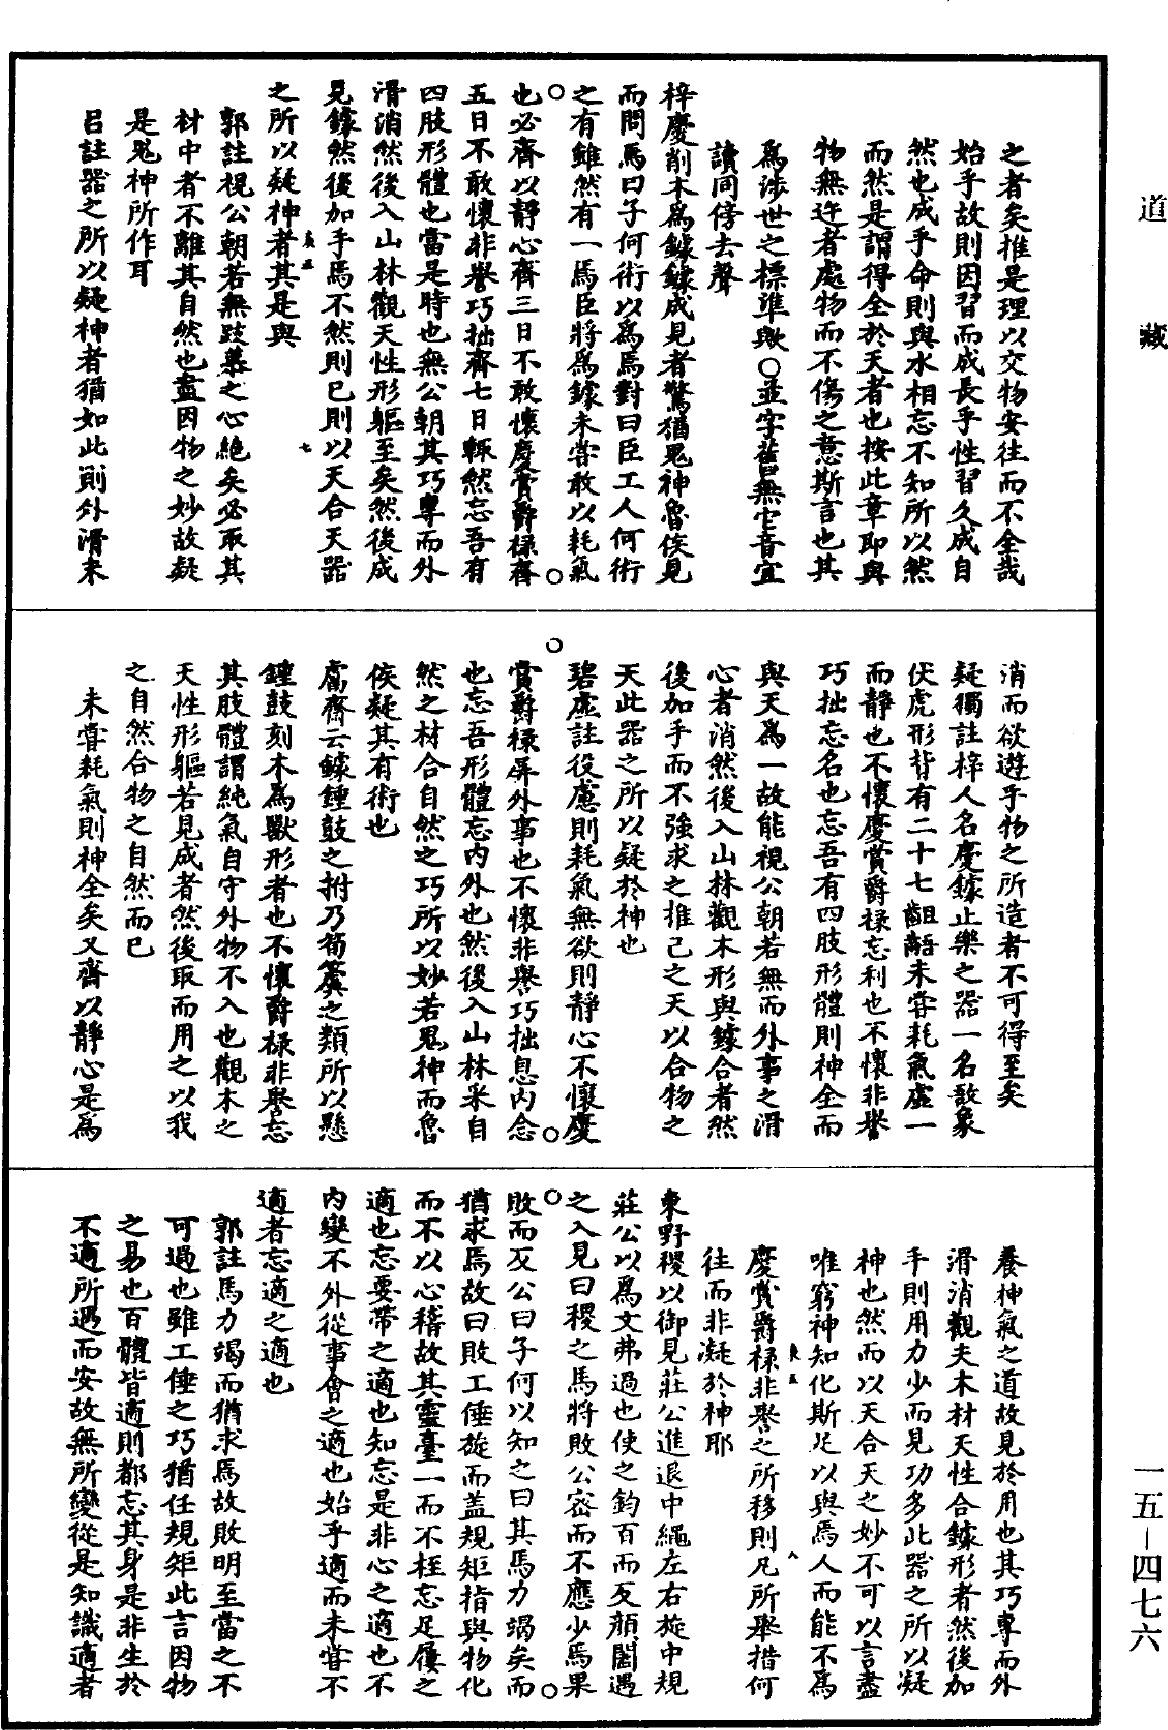 道藏
之者矣推是理以交物安往而不全哉
始乎故則因習而成長乎性習久成自
然也成乎命則與水相忘不知所以然
而然是謂得全於天者也按此章即與
物無迕者處物而不傷之意斯言也其
為涉世之標準歟○並字舊無它音宜
讀同傍去聲
梓慶削木為鐻鐻成見者驚猶鬼神魯侯見
而問焉曰子何術以為焉對曰臣工人何術
之有雖然有一焉臣將為鐻未嘗敢以耗氣
也必齊以靜心齊三日不敢懷慶賞爵祿齊
五日不敢懷非譽巧拙齊七日輒然忘吾有
四肢形體也當是時也無公朝其巧專而外
滑消然後入山林觀天性形軀至矣然後成
見鐻然後加手焉不然則已則以天合天器
之所以疑神者其是與
郭註視公朝若無跂慕之心絕矣必取其
材中者不離其自然也盡因物之妙故疑
是鬼神所作耳
呂註器之所以疑神者猶如此則外滑未
消而欲遊乎物之所造者不可得至矣
疑獨註梓人名慶鐻止樂之器一名敔象
伏虎形背有二十七齟齬未嘗耗氣虛一
而靜也不懷慶賞爵祿忘利也不懷非譽
巧拙忘名也忘吾有四肢形體則神全而
與天為一故能視公朝若無而外事之滑
心者消然後入山林觀木形與鐻合者然
後加手而不強求之推己之天以合物之
天此器之所以疑於神也
碧虛註役慮則耗氣無欲則靜心不懷慶
賞爵祿屏外事也不懷非譽巧拙息內念
也忘吾形體忘內外也然後入山林采自
然之材合自然之巧所以妙若鬼神而魯
侯疑其有術也
鬳齋云鐻鍾鼓之柎乃筍簴之類所以懸
鍾鼓刻木為獸形者也不懷爵祿非譽忘
其肢體謂純氣自守外物不入也觀木之
天性形軀若見成者然後取而用之以我
之自然合物之自然而已
未嘗耗氣則神全矣又齊以靜心是為
養神氣之道故見於用也其巧專而外
滑消觀夫木材天性合鐻形者然後加
手則用力少而見功多此器之所以疑
神也然而以天合天之妙不可以言盡
唯窮神知化斯足以與焉人而能不為
慶賞爵祿非譽之所移則凡所舉措何
往而非凝於神耶
東野稷以御見莊公進退中繩左右旋中規
莊公以為文弗過也使之鉤百而反顏闔遇
之入見曰稷之馬將敗公密而不應少焉果
敗而反公曰子何以知之曰其馬力竭矣而
猶求焉故曰敗工倕旋而蓋規矩指與物化
而不以心稽故其靈臺一而不桎忘足屨之
適也忘要帶之適也知忘是非心之適也不
內變不外從事會之適也始乎適而未嘗不
適者忘適之適也
郭註馬力竭而猶求焉故敗明至當之不
可過也雖工倕之巧猶任規矩此言因物
之易也百體皆適則都忘其身是非生於
不適所遇而安故無所變從是知識適者
一五—四七六